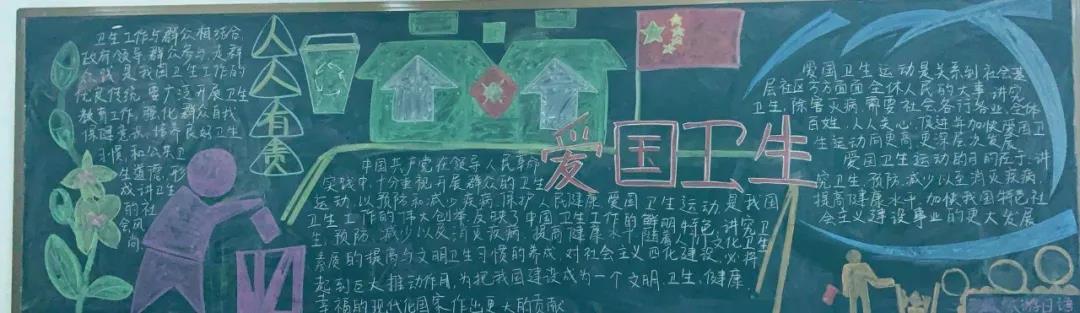 卫生工作与群众相结合,
政府领导群众参与,走群
众路线是我国卫生工作的
优良传统.要广泛开展卫生
教育工作,强化群众自我
保健意识,培养良好卫生
习惯,和公众卫
生道德,形
成讲卫生
的社
会风
尚
人
人
有
责
爱国卫生
中国共产党在领导人民革命
实践中,十分重视开展群众的卫生
运动,以预防和减少疾病,保护人民健康,爱国卫生运动是我国
卫生工作的伟大创举,反映了中国卫生工作的鲜明特色,讲究卫
生,预防,减少以及消灭疾病,提高健康水平,随着人们文化卫生
素质的提高与文明卫生习惯的养成,对社会主义四化建设,必将
起到巨大推动作用,为把我国建设成为一个文明,卫生,健康,
幸福的现代化国家,作出更大的贡献
爱国卫生运动是关系到社会基
层社区方方面面全体人民的大事,讲究
卫生,除害灭病,需要社会各行各业,全体
百姓,人人关心,促进并加快爱国卫
生运动向更高更深层次发展
爱国卫生运动的目的在于,讲
究卫生,预防,减少以至消灭疾病,
提高健康水平,加快我国特色社
会主义建设事业的更大发展
游日语